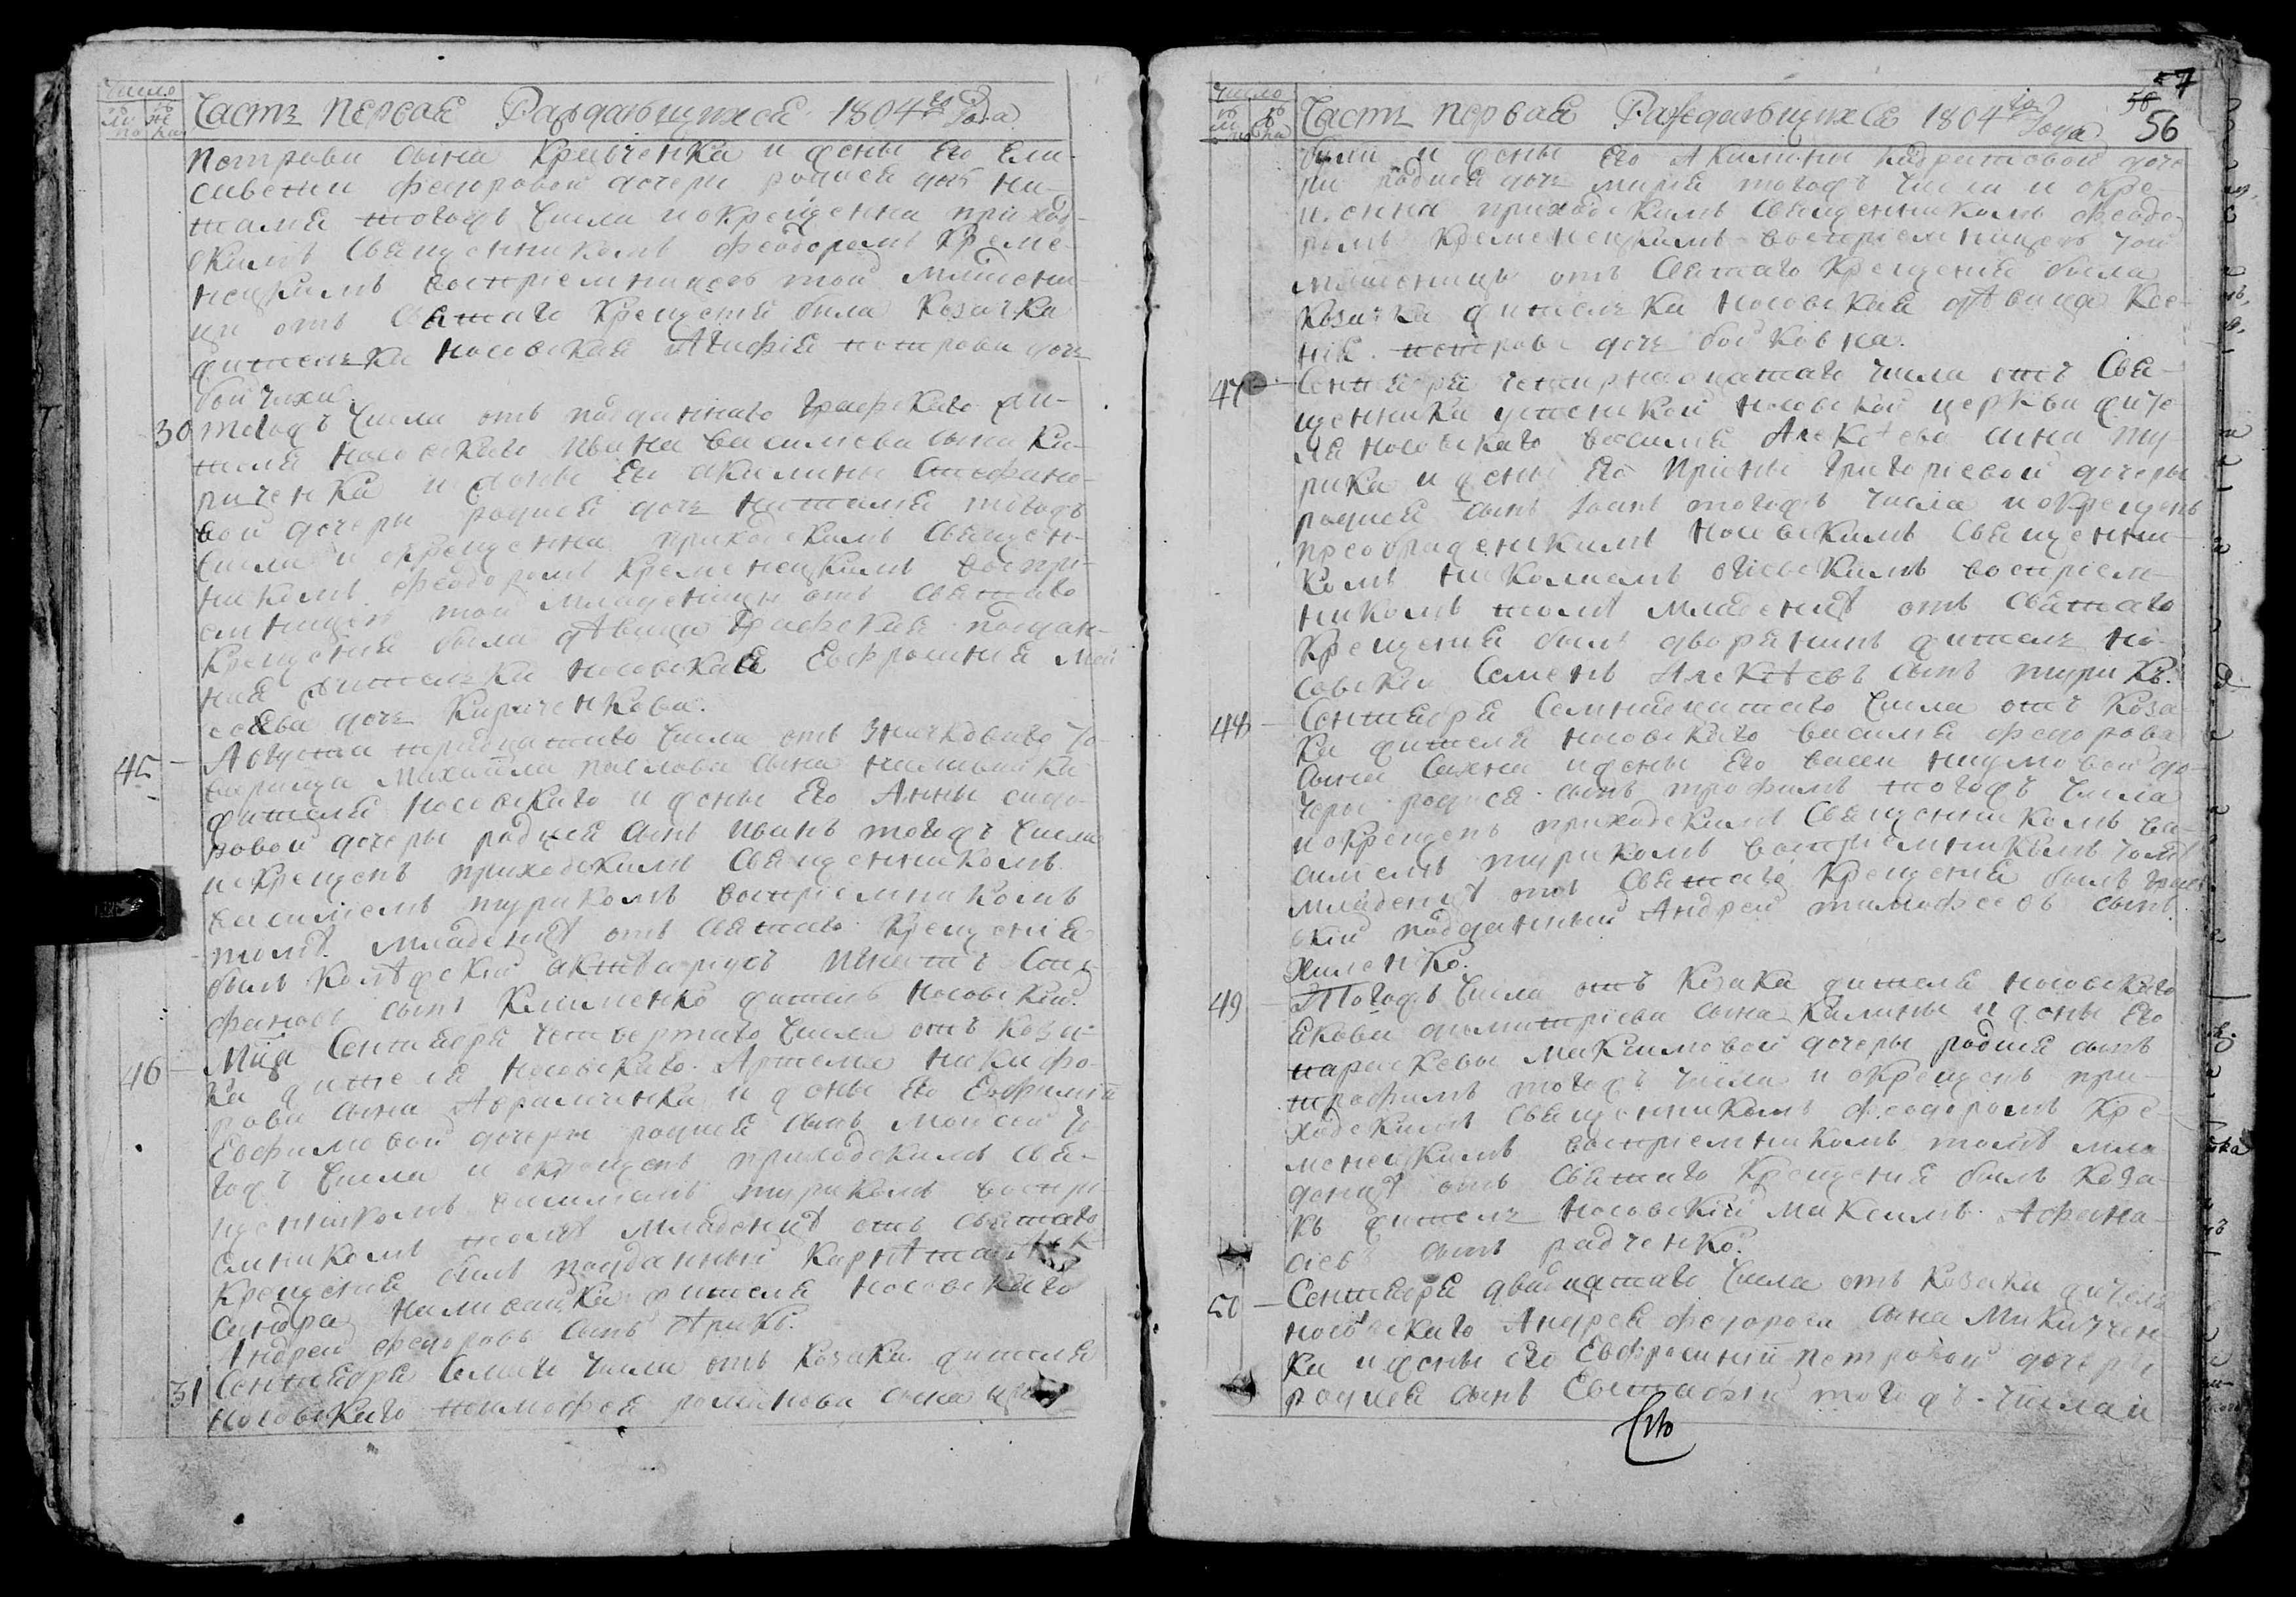 число
Часть первая Раждающихся 1804го Года
петрова сына Кравченка и жены Его Ели-
саветы федоровой дочери родися дочь на-
талия тогожъ числа и окрещенна приход-
скимъ Священникомъ феодоромъ Креме-
нецкимъ восприемницею той младени-
ци отъ Святаго Крещения была Козачка
жителка носовская Агафия петрова дочь
бойчиха
30 тогожъ числа отъ подданнаго Графскаго жи-
теля носовскаго Ивана василиева сына Ки-
риченка и жоны Его акилины Стефано-
вой дочеры родися дочь наталия тогожъ
числа и окрещенна приходскимъ Священ-
никомъ феодоромъ Кременецкимъ воспри-
емницею той младеници отъ Святаго
Крещения была дѣвица Графская поддан-
ная жителка носовская Евфросиния Мой
сеева дочь Кириченкова.
45 Августа тридцатаго числа отъ значковаго То-
варища Михайла павлова сына
жителя носовскаго и жены Его Анны сидо-
ровой дочеры родися сынъ Иванъ тогожъ числа
и окрещенъ приходскимъ Священникомъ
василиемъ туркомъ восприемникомъ
томъ младенцѣ отъ Святаго Крещения
былъ Колѣжскій актвариусъ Игнатъ Сте-
фановъ сынъ Клименко житель носовскій.
46 Мца Сентября четвертаго числа отъ Коза-
ка жителя носовскаго Артема никифо-
рова сына Авраменка и жоны Его Евфимии
Евфимовой дочеры родися сынъ Моисей То-
гожъ числа и окрещенъ приходскимъ Свя-
щенникомъ василиемъ туркомъ воспри
емникомъ томъ младенцѣ отъ Святаго
Крещения былъ подданный
жителя носовскаго
Андрей федоровъ сынъ
31 Сентября Семаго числа отъ Козака жителя
носовскаго тимофея романова сына
57
58
56
число
Часть первая Раждающихся 1804го Года
и жены Его Акилины доче
ри родися дочь Мария тогожъ числа и окре-
щенна приходскимъ Священникомъ феодо-
ромъ Кременецкимъ восприемницею той
младеници отъ Святаго Крещения была
Козачка жителка носовская дѣвица Ксе-
ния петрова дочь бойковна.
47 Сентября четирнадцатаго числа отъ Свя-
щенника успенской носовской церкви жите-
ля носовскаго василия Алексѣева сина ту-
рика и жены Его Ирины Григориевой дочеры
родися сынъ Іоанъ тогожъ числа и окрещенъ
преображенскимъ носовскимъ Священни-
комъ николаемъ восприем-
никомъ томъ младенцѣ отъ Святаго
Крещения былъ дворянинъ житель но-
совскій Семенъ Алексѣевъ сынъ турикъ.
48 Сентября Семнадцатаго числа отъ Коза-
ка жителя носовскаго василия федорова
сына и жены Его наумовой до-
черы родися сынъ трофимъ тогожъ числа
и окрещенъ приходскимъ Священникомъ ва-
силиемъ туркомъ восприемникомъ томъ
младенцѣ отъ Святаго Крещения былъ Граф
скій подданный Андрей тимофеевъ сынъ

49 Тогожъ числа отъ Козака жителя носовскаго
Якова димитриева сына Калины и жены Его
параскевы Максимовой дочеры родися сынъ
трофимъ тогожъ числа и окрещенъ при-
ходскимъ Священникомъ феодоромъ Кре-
менецкимъ восприемникомъ томъ мла
денцѣ отъ Святаго Крещения былъ Коза-
къ житель носовскій Максимъ Афана-
сіевъ сынъ радченко.
50 Сентября двадцатаго числа отъ Козака жителя
носовскаго Андрея федорова сына
ка и жены его Евфросиніи петровой дочери
родися сынъ Евстафій тогожъ числа и